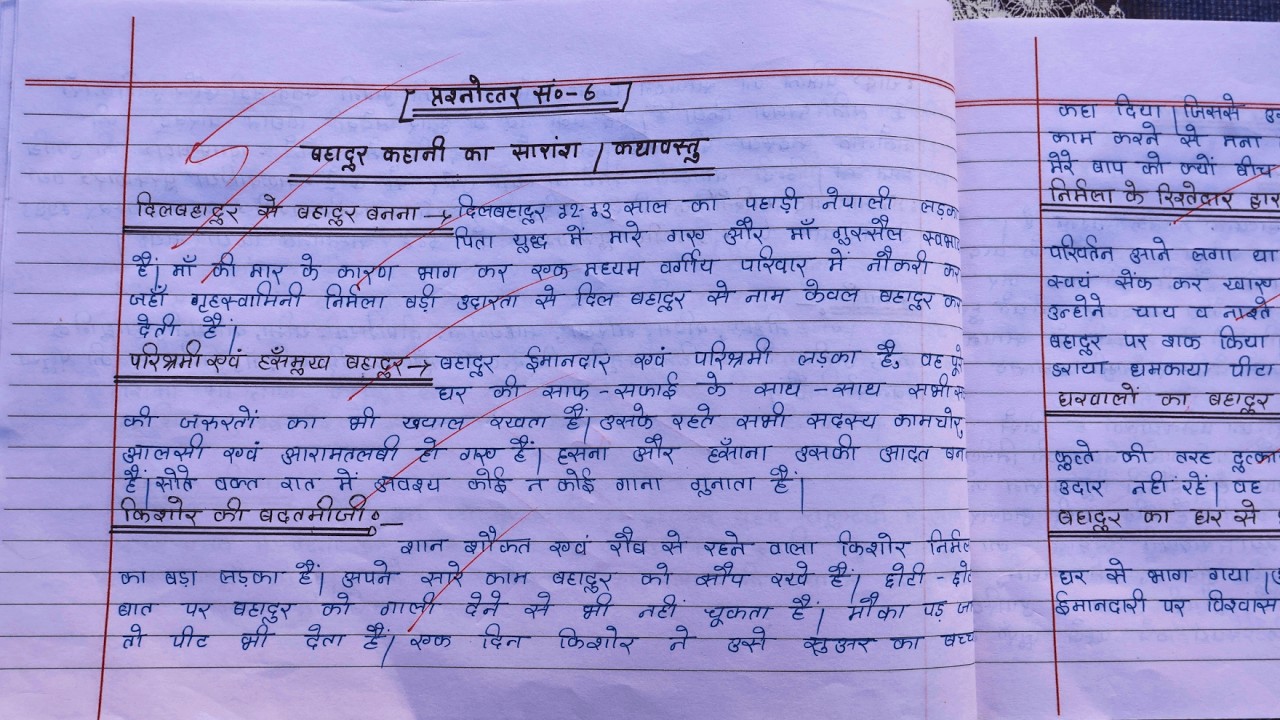 प्रश्नोत्तर सं०-6
बहादुर कहानी का सारांश / कथावस्तु
दिलबहादुर से बहादुर बनना → दिलबहादुर 12-13 साल का पहाड़ी नेपाली लड़क
पिता युध्द में मारे गए और माँ गुस्सैल स्वभाव
हैं| माँ की मार के कारण भाग कर एक मध्यम वर्गीय परिवार में नौकरी कर
जहाँ गृहस्वामिनी निर्मला बड़ी उदारता से दिल बहादुर से नाम केवल बहादुर कर
देती है|
परिश्रमी एवं हँसमुख बहादुर → बहादुर ईमानदार एवं परिश्रमी लड़का है, वह पूरे
घर की साफ-सफाई के साथ-साथ सभी
की जरूरतों का भी ख्याल रखता हैं| उसके रहते सभी सदस्य कामचोर,
आलसी एवं आरामतलबी हो गए हैं| हसना और हँसाना उसकी आदत बन
हैं| सोते वक्त रात में अवश्य कोई न कोई गाना गुनाता है|
किशोर की बदतमीजी :–
शान शौकत एवं रौब से रहने वाला किशोर निर्मल
का बड़ा लड़का हैं| अपने सारे काम बहादुर को सौप रखे हैं| छोटी-छोट
बात पर बहादुर को गाली देने से भी नहीं चूकता है| मौका पड़ जा
तो पीट भी देता हैं| एक दिन किशोर ने उसे सुअर का बच्च
कहा दिया| जिससे उ
काम करने से मना
मेरे बाप को क्यों बीच
निर्मला के रिश्तेदार द्वार
परिवर्तन आने लगा था
स्वयं सेंक कर खाए
उन्होने चाय व नाश्ते
बहादुर पर शक किया
डराया धमकाया पीटा
घरवालों का बहादुर
कुत्ते की तरह दुत्का
उदार नहीं रहें| वह
बहादुर का घर से
घर से भाग गया|
ईमानदारी पर विश्वास